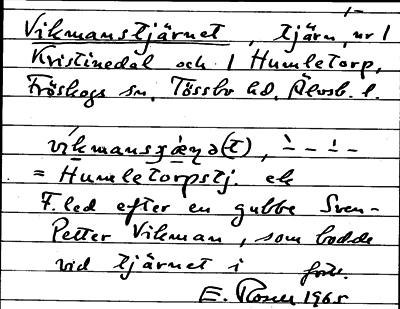 Vikmanstjärnet, tjärn, nr 1
Kristinedal och 1 Humletorp,
Fröskogs sn, Tössbo hd, Älvsb. l.
= Humletorpstj. ek
F.led efter en gubbe Sven-
Petter Vikman, som bodde
vid tjärnet i
E. Rosen 1965